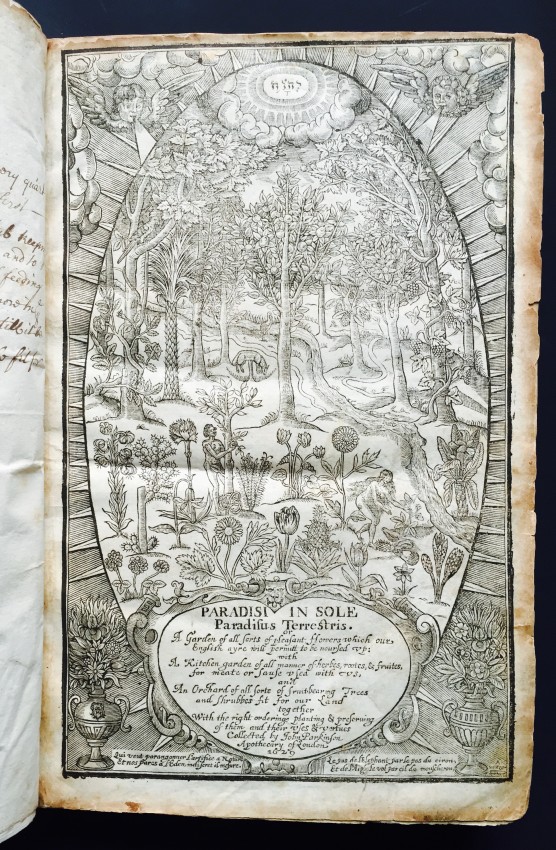 יהוה
PARADISI IN SOLE
Paradisus Terrestris.
or
A Garden of all sorts of pleasant flowers which our
English ayre will permitt to be noursed vp:
with
A Kitchen garden of all manner of herbes, rootes, & fruites,
for meate or sause vsed with vs,
and
An Orchard of all sorte of fruitbearing Trees
and shrubbes fit for our Land
together
With the right orderinge planting & preseruing
of them and their vses & vertues
Collected by John Parkinson
Apothecary of London
1629
Qui veut parangonner l'artifice a Nature
Et nos parcs à l'Eden indiscret il mesure.
Le pas de l'elephant par le pas du ciron,
Et de l'Aigle le vol par cil du moucheron.